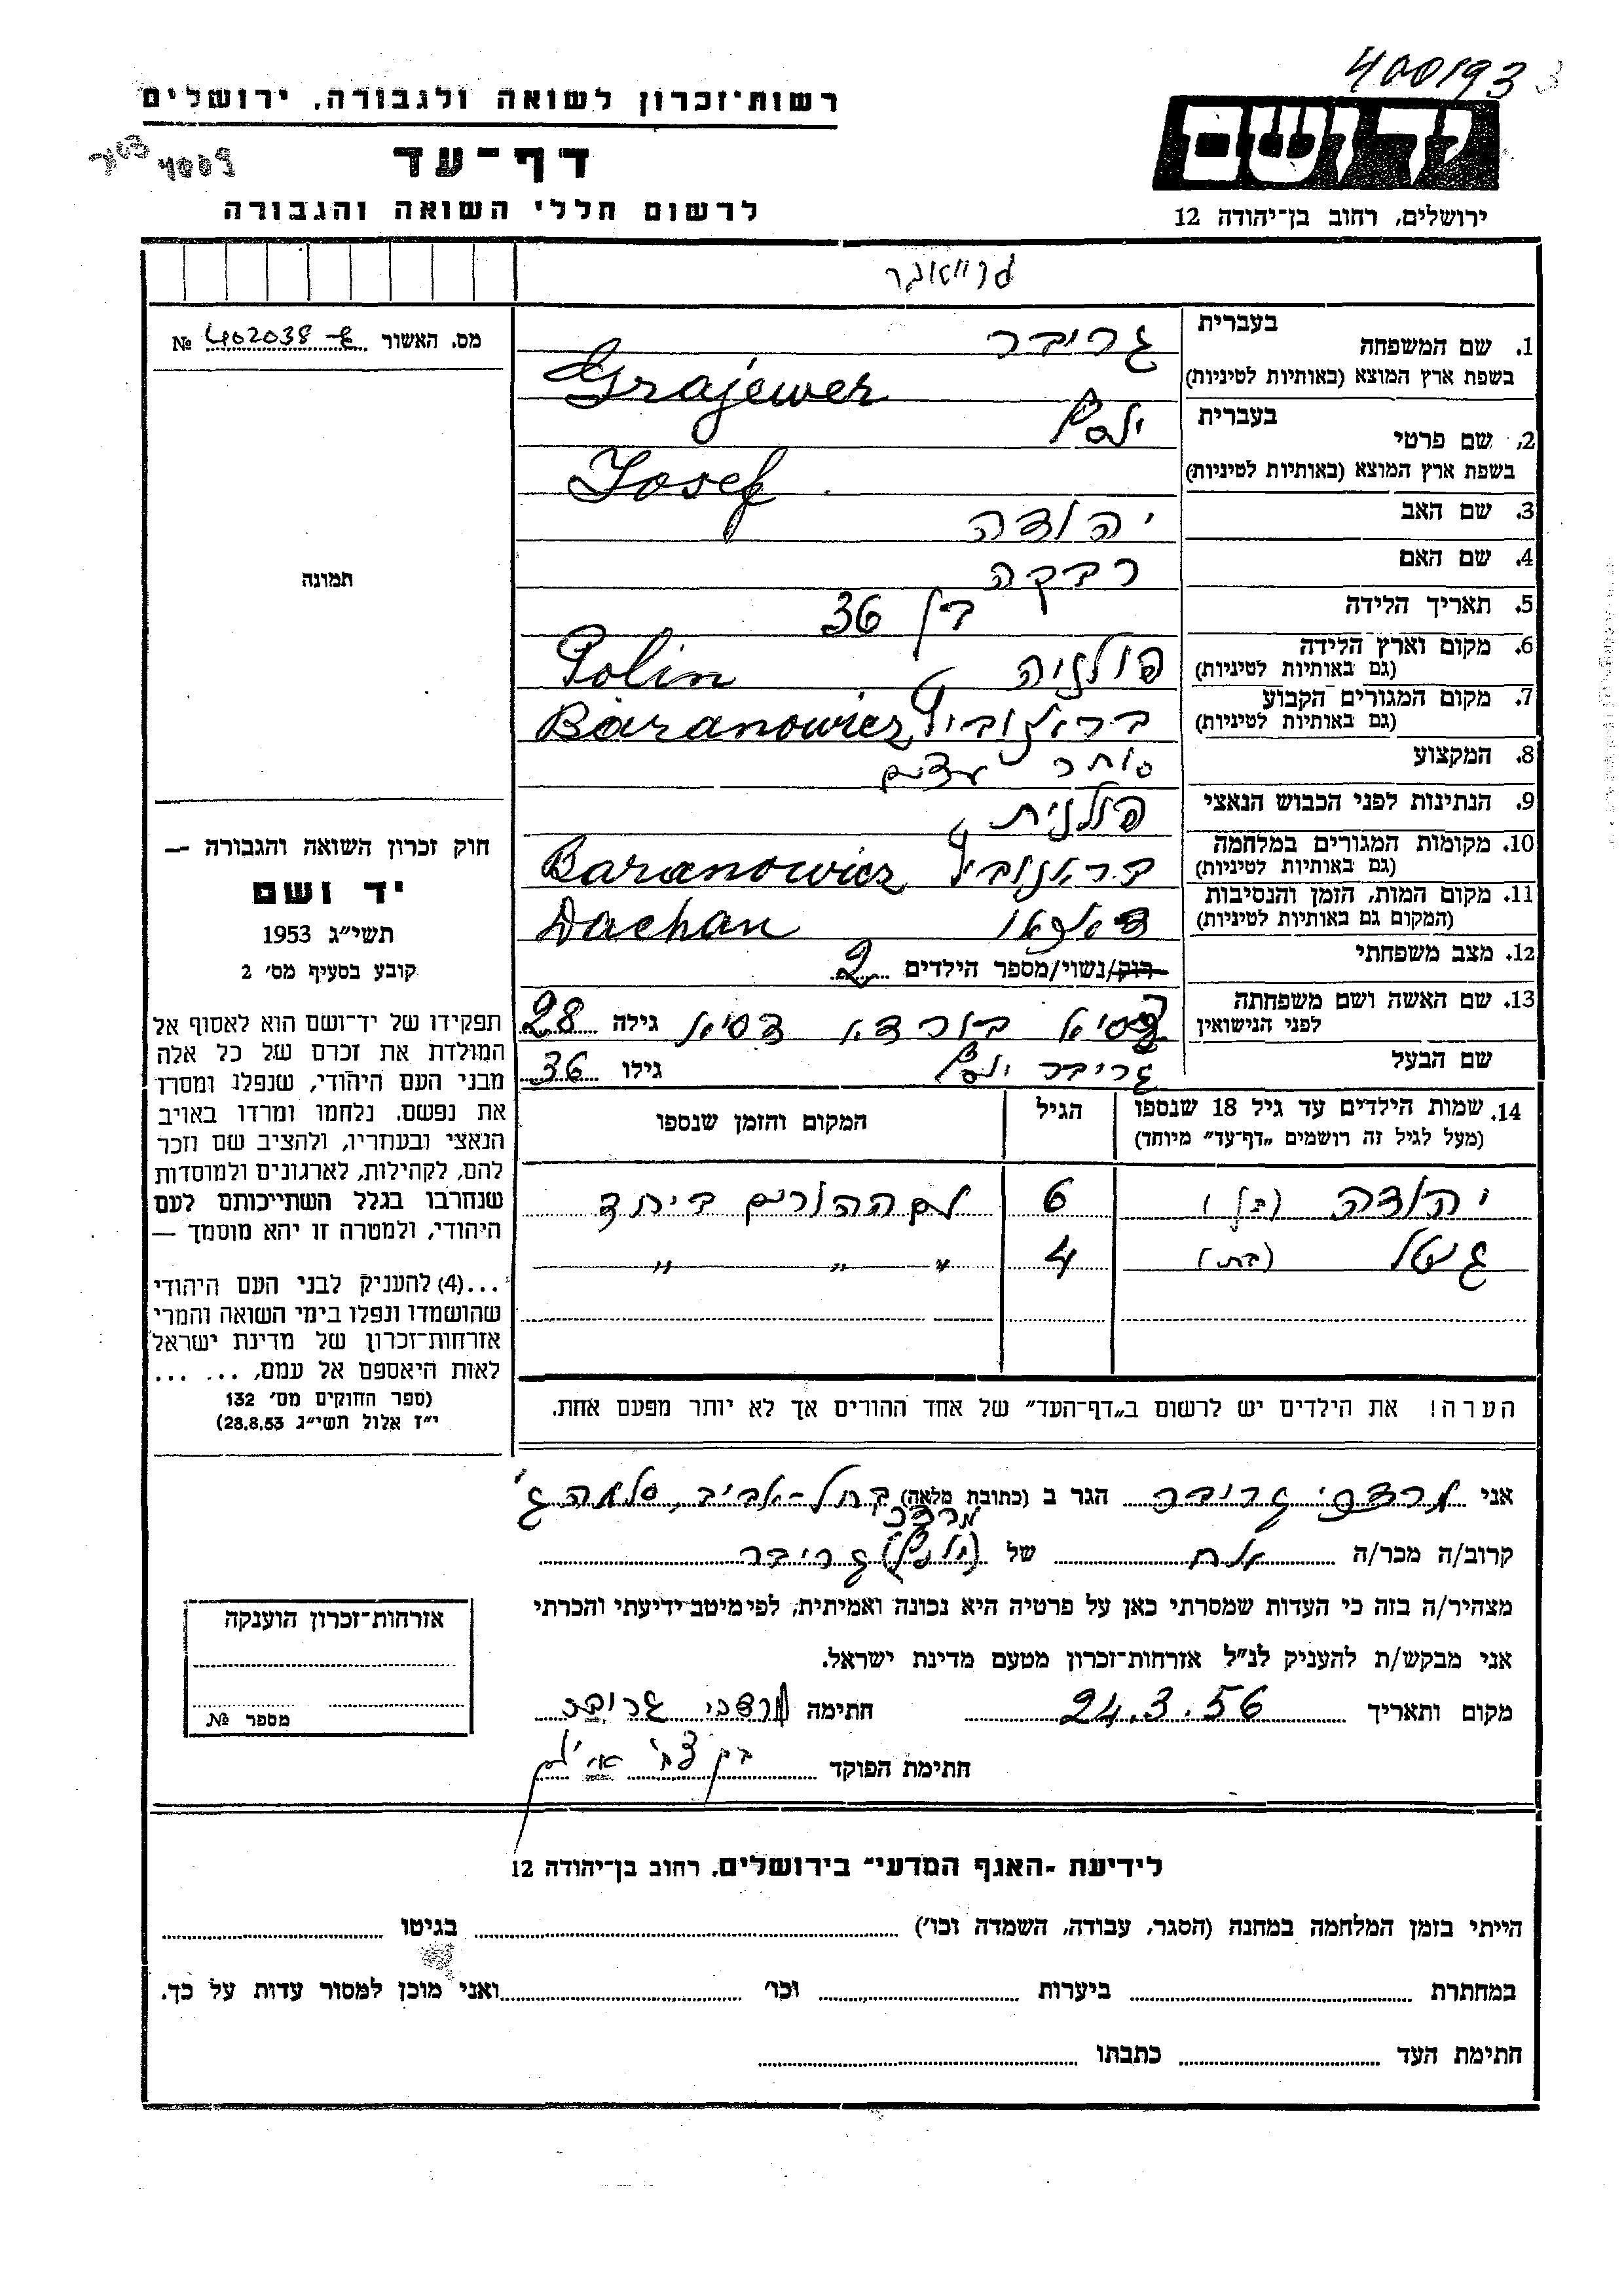 400193
רשות-זכרון לשואה ולגבורה, ירושלים
דף-עד
לרשום חללי השואה והגבורה
ידושם
ירושלים, רחוב בן-יהודה 12
גרייאבר
מס. האשור 402038 №
1. שם המשפחה בעברית גריבר
בשפת ארץ המוצא (באותיות לטיניות) Grajewer
2. שם פרטי בעברית יוסף
בשפת ארץ המוצא (באותיות לטיניות) Josef
3. שם האב יהודה
4. שם האם רבקה
5. תאריך הלידה בן 36
6. מקום וארץ הלידה (גם באותיות לטיניות) פולניה Polin
7. מקום המגורים הקבוע (גם באותיות לטיניות) ברנוביץ Baranowicz
8. המקצוע סוחר עצים
9. הנתינות לפני הכבוש הנאצי פולנית
10. מקומות המגורים במלחמה (גם באותיות לטיניות) ברנוביץ Baranowicz
11. מקום המות, הזמן והנסיבות (המקום גם באותיות לטיניות) דאכאו Dachau
12. מצב משפחתי רווק/נשוי/מספר הילדים 2
13. שם האשה ושם משפחתה לפני הנישואין גילה 28
שם הבעל גריבר יוסף גילו 36
תמונה
חוק זכרון השואה והגבורה —
יד ושם
תשי״ג 1953
קובע בסעיף מס׳ 2
תפקידו של יד-ושם הוא לאסוף אל
המולדת את זכרם של כל אלה
מבני העם היהודי, שנפלו ומסרו
את נפשם, נלחמו ומרדו באויב
הנאצי ובעוזריו, ולהציב שם וזכר
להם, לקהילות, לארגונים ולמוסדות
שנחרבו בגלל השתייכותם לעם
היהודי, ולמטרה זו יהא מוסמך —
...(4) להעניק לבני העם היהודי
שהושמדו ונפלו בימי השואה והמרי
אזרחות-זכרון של מדינת ישראל
לאות היאספם אל עמם, ... ...
(ספר החוקים מס׳ 132
י״ז אלול תשי״ג 28.8.53)
14. שמות הילדים עד גיל 18 שנספו הגיל המקום והזמן שנספו
(מעל לגיל זה רושמים „דף-עד״ מיוחד)
יהודה (בן) 6 עם ההורים ביחד
גיטל (בת) 4 " " "
הערה! את הילדים יש לרשום ב„דף-העד״ של אחד ההורים אך לא יותר מפעם אחת.
אני מרדכי גריבר הגר ב (כתובת מלאה) בתל-אביב, סלמה ג'
מרדכי
קרוב/ה מכר/ה אח של (יוסף) גריבר
מצהיר/ה בזה כי העדות שמסרתי כאן על פרטיה היא נכונה ואמיתית, לפי מיטב ידיעתי והכרתי
אני מבקש/ת להעניק לנ״ל אזרחות-זכרון מטעם מדינת ישראל.
מקום ותאריך 24.3.56 חתימה מרדכי גריבר
חתימת הפוקד בן צבי
אזרחות-זכרון הוענקה
מספר №
לידיעת -האגף המדעי״ בירושלים, רחוב בן-יהודה 12
הייתי בזמן המלחמה במחנה (הסגר, עבודה, השמדה וכו׳) בגיטו
במחתרת ביערות וכו׳ ואני מוכן למסור עדות על כך.
חתימת העד כתבתו